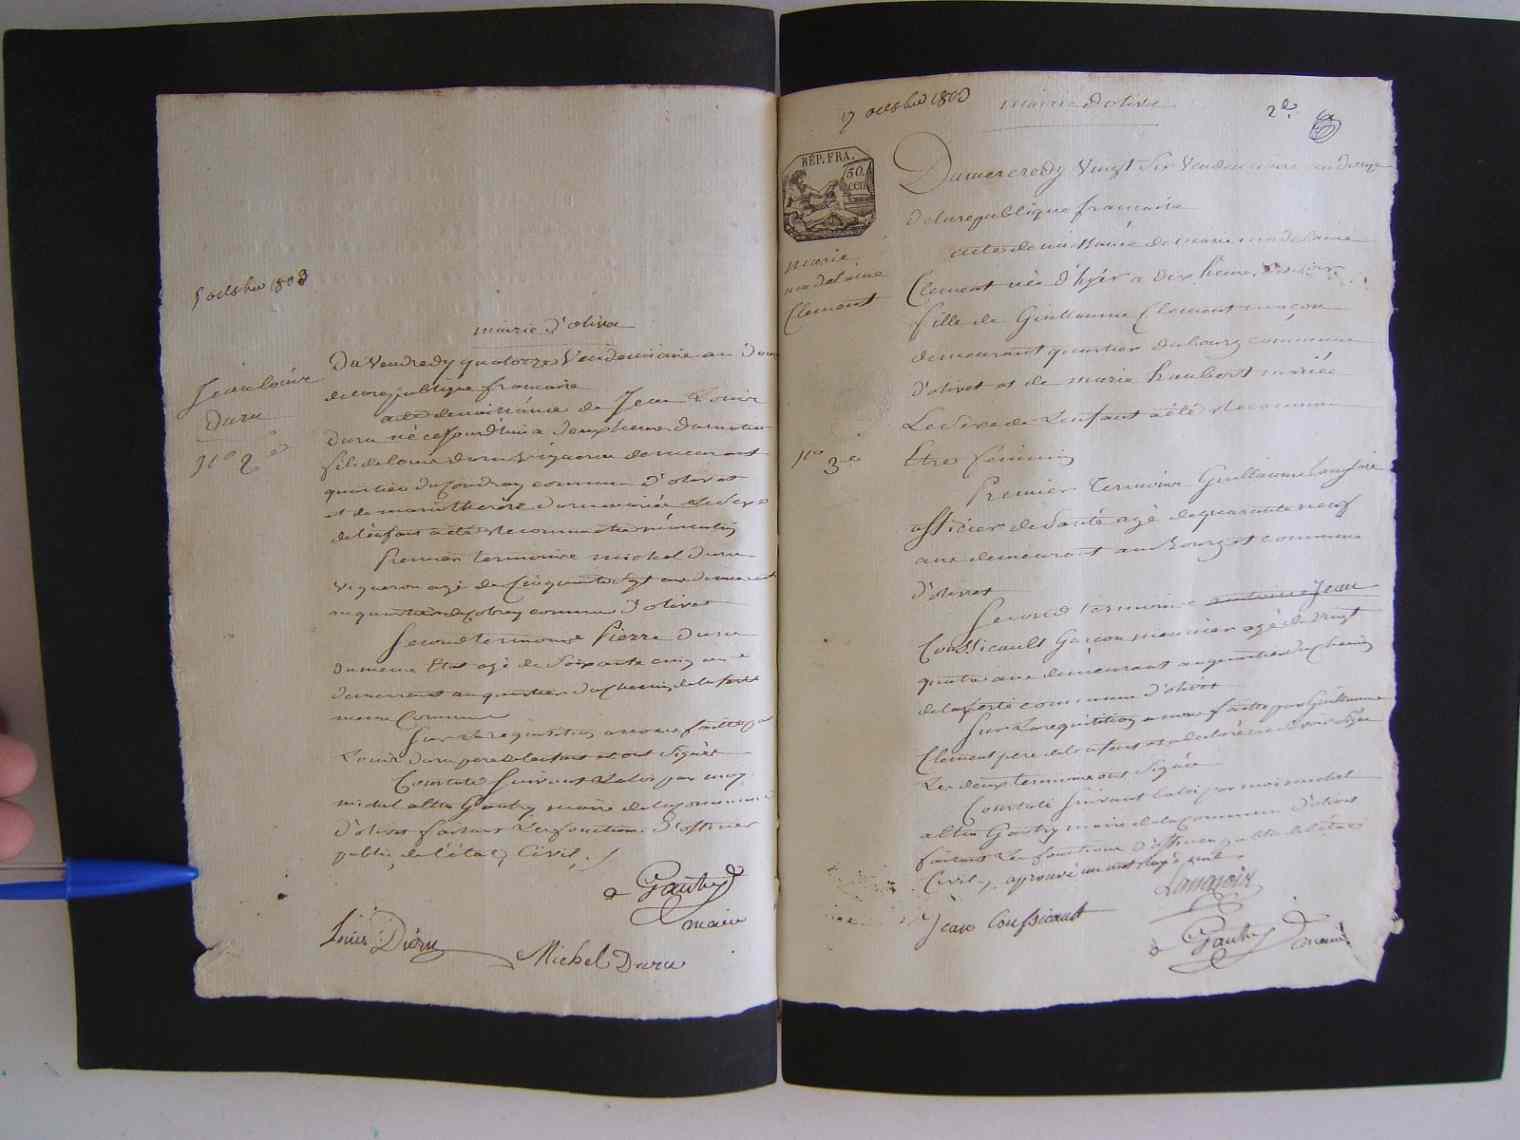 5 octobre 1803
mairie d'olivet
Jean louis
Duru
N° 2e
Du Vendredy quatorze Vendemiaire an
de la republique francaise
acte de naissance de Jean Louis
Duru né ce Jourd'hui a deux heures du matin
fils de louis Duru Vigneron demeurant
quartier du Coudray commune d'olivet
et de marie therese mariée Le Sexe
de l'enfant a été Reconnu Etre masculin
Premier temoin michel duru
Vigneron agé de Cinquante Sept ans demeurant
au quartier du commune d'olivet
Second temoin Pierre Duru
du meme Etat agé de Soixante cinq ans
demeurant au quartier du chemin de la ferté
meme Commune
Sur La requisition a nous faitte par
Louis Duru pere de l'enfant et ont Signés
Constaté Suivant La loi par moy
michel altin Gautry maire de la commune
d'olivet faisant Les fonctions d'officier
public de l'état Civil
Gautry
maire
Louis Duru
Michel Duru
17 octobre 1803
mairie d'olivet
2e
RÉP. FRA.
50
CEN
marie
madelaine
Clement
N° 3e
Du mercredy Vingt Six Vendemiaire an douze
de la republique francaise
acte de naissance de marie madelaine
Clement née d'hyér a dix heures du Soir
fille de Guillaume Clement maçon
demeurant quartier du bourg commune
d'olivet et de marie haubert mariée
Le Sexe de L'enfant a été Reconnu
Etre féminin
Premier temoin Guillaume Langlois
officier de Santé agé de quarante neuf
ans demeurant au Bourg et commune
d'olivet
Second temoin antoine Jean
Coussicault Garçon meunier agé de vingt
quatre ans demeurant au quartier du chemin
de la ferté commune d'olivet
Sur La requisition a nous faitte par Guillaume
Clement pere de l'enfant et a declaré ne Savoir Signer
Les deux temoins ont Signés
Constaté Suivant la loi par moi michel
altin Gautry maire de la commune d'olivet
faisant Les fonctions d'officier public de l'état
Civil, aprouvé un mot rayé nul
Jean Coussicault
Gautry maire